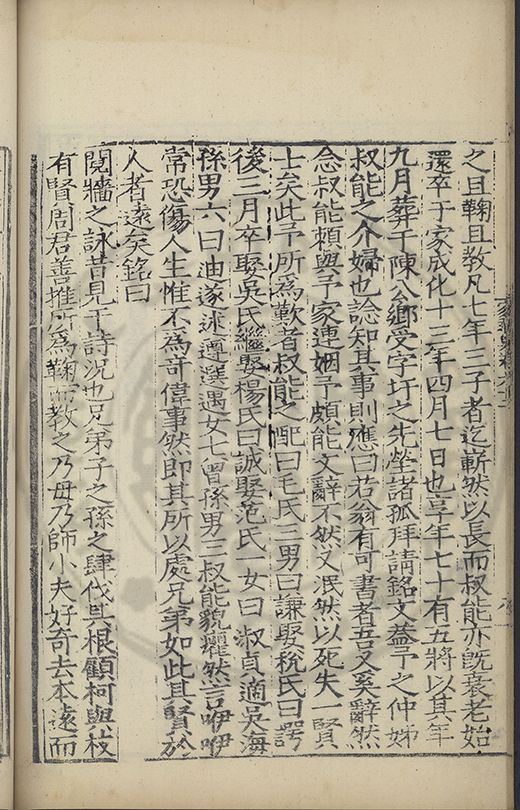 之且鞠且教凡七年三子者迄嶄然以長而叔能亦既衰老始
還卒于家成化十三年四月七日也享年七十有五將以其年
九月葬于陳公鄉受字圩之先塋諸孤拜請銘文蓋予之仲姊
叔能之介婦也諗知其事則應曰若翁有可書者吾又奚辭然
念叔能頼與予家連姻予頗能文辭不然又泯然以死失一賢
士矣此予所為歎者叔能之配曰毛氏三男曰謙娶稅氏曰諤
後三月卒娶吳氏繼娶楊氏曰誠娶范氏一女曰淑貞適吳海
孫男六曰由遂述遵選遇女七曾孫男三叔能貌臞然言咿咿
常恐傷人生惟不為奇偉事然即其所以處兄弟如此其賢於
人者遠矣銘曰
鬩牆之詠昔見于詩況也兄弟子之孫之肆伐其根顧柯與枝
有賢周君善推所為鞠而教之乃母乃師小夫好奇去本遠而